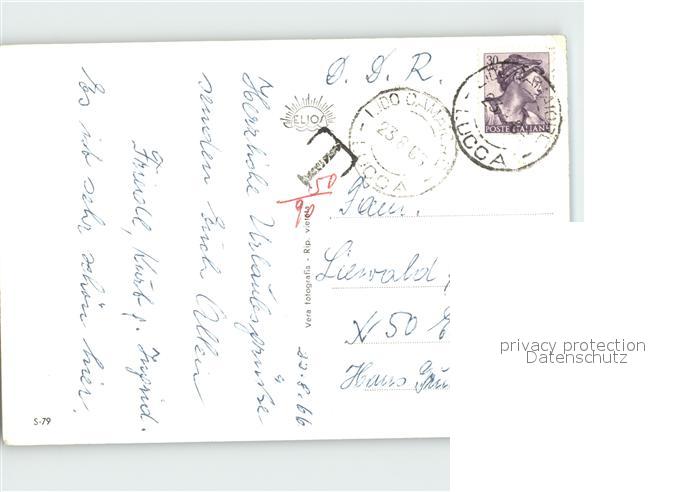 Herzliche Urlaubsgrüße
senden Euch Allen
Friedl, Kurt u. Ingrid.
Es ist sehr schön hier.
22.8.66
S-79
Vera fotografia - Rip. vietata
ELIOS
D. D. R.
LIDO DI
23 8 66
LUCCA
30
POSTE ITALIANE
LUCCA
T
50
90
Fam.
Liewald
X 50 E
Hans
privacy protection
Datenschutz